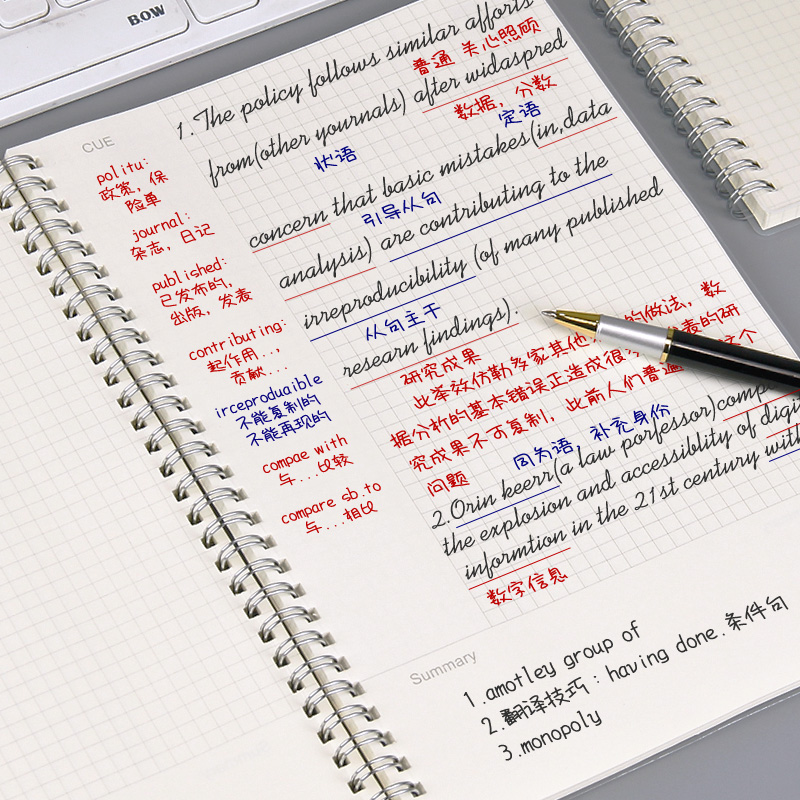 BOW
CUE
politu:
政策，保
险单
journal:
杂志，日记
published:
已发布的，
出版，发表
contributing:
起作用...，
贡献...
irceproduaible
不能复制的
不能再现的
compae with
与...比较
compare sb.to
与...相比
1.The policy follows similar afforts
普通 关心照顾
from(other yournals) after widaspred
数据，分数
状语
定语
concern that basic mistakes(in,data
引导从句
analysis) are contributing to the
irreproducibility (of many published
从句主干
researn findings).
研究成果
此举效仿勒多家其他 的做法，数
据分析的基本错误正造成很 表的研
究成果不可复制，此前人们普遍 这个
问题
同为语，补充身份
2.Orin keerr(a law porfessor)comp
the explosion and accessiblity of digi
informtion in the 21st century with
数字信息
Summary
1.amotley group of
2.翻译技巧：having done.条件句
3.monopoly